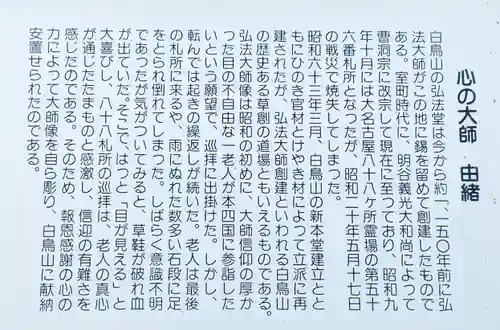 心の大師 由緒
白鳥山の弘法堂は今から約「、一五〇年前に弘
法大師がこの地に錫を留めて創建したもので
ある。室町時代に、明谷義光大和尚によって
曹洞宗に改宗して現在に至っており、昭和九
年十月には大名古屋八十八ヶ所霊場の第五十
六番札所となったが、昭和二十年五月十七日
の戦災で焼失してしまった。
昭和六十三年三月、白鳥山の新本堂建立とと
もにひのき官材とけやき材によって立派に再
建されたが、弘法大師創建といわれる白鳥山
の歴史ある草創の道場ともいえるものである。
弘法大師像は昭和の初めに、大師信仰の厚か
った目の不自由な一老人が本四国に参詣した
いという願望で、巡拝に出掛けた。しかし、
転んでは起きの繰返しが続いた。老人は最後
の札所に来るや、雨にぬれた数多い石段に足
をとられ倒れてしまった。しばらく意識不明
であったが気がついてみると、草鞋が破れ血
が出ていた。そこで、はっと「目が見える」と
大喜びし、八十八札所の巡拝は、老人の真心
が通じたたまものと感激し、信迎の有難さを
感じたのである。そのため、報恩感謝の心の
力によって大師像を自ら彫り、白鳥山に献納
安置せられたのである。